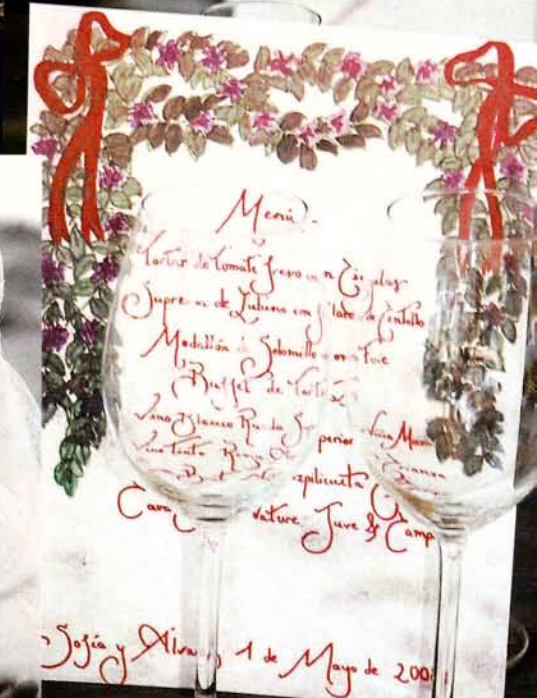 Menú.-
Tartar de tomate fresco con Cigalas
Suprema de Lubina con
Medallón de Solomillo con Foie
Buffet de Tartas
Vino Blanco Rueda Superior Viña
Vino Tinto Rioja Crianza
Azpilicueta
Cava Nature Juvé & Camp
Sofía y Álvaro 1 de Mayo de 200